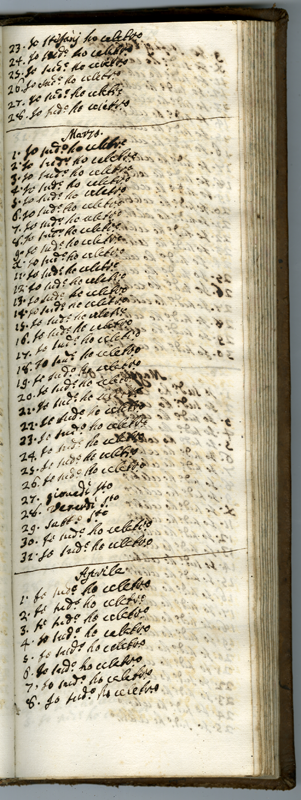 23. Io Stefanj ho celebro
24. Io sud.º ho celebro
25. Io sud.º ho celebro
26. Io sud.º ho celebro
27. Io sud.º ho celebro
28. Io sud.º ho celebro
Marzo
1. Io sud.º ho celebro
2. Io sud.º ho celebro
3. Io sud.º ho celebro
4. Io sud.º ho celebro
5. Io sud.º ho celebro
6. Io sud.º ho celebro
7. Io sud.º ho celebro
8. Io sud.º ho celebro
9. Io sud.º ho celebro
10. Io sud.º ho celebro
11. Io sud.º ho celebro
12. Io sud.º ho celebro
13. Io sud.º ho celebro
14. Io sud.º ho celebro
15. Io sud.º ho celebro
16. Io sud.º ho celebro
17. Io sud.º ho celebro
18. Io sud.º ho celebro
19. Io sud.º ho celebro
20. Io sud.º ho celebro
21. Io sud.º ho celebro
22. Io sud.º ho celebro
23. Io sud.º ho celebro
24. Io sud.º ho celebro
25. Io sud.º ho celebro
26. Io sud.º ho celebro
27. Giovedì sto
28. Venerdì sto
29. Sabb.º sto
30. Io sud.º ho celebro
31. Io sud.º ho celebro
Aprile
1. Io sud.º ho celebro
2. Io sud.º ho celebro
3. Io sud.º ho celebro
4. Io sud.º ho celebro
5. Io sud.º ho celebro
6. Io sud.º ho celebro
7. Io sud.º ho celebro
8. Io sud.º ho celebro